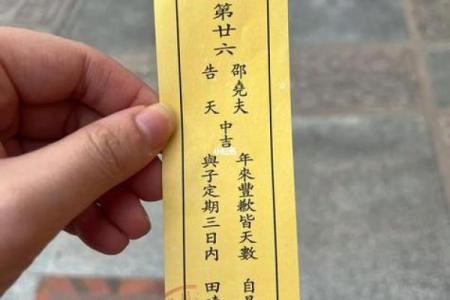 第廿六
邵堯夫
告天
中吉
年來豐歉皆天數 自是
與子定期三日內 田疇